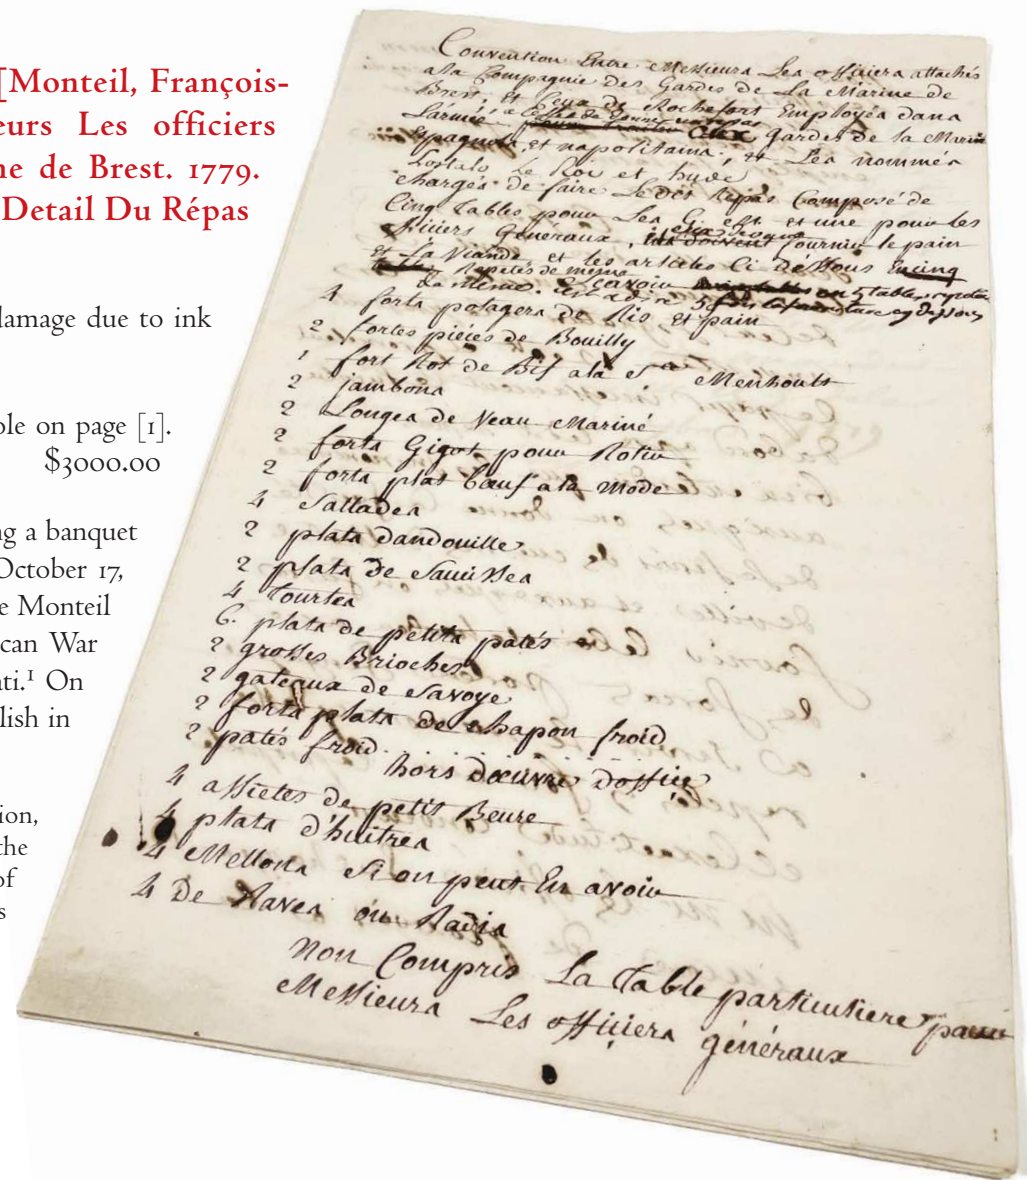 [Monteil, François-
eurs Les officiers
ne de Brest. 1779.
Detail Du Répas
damage due to ink
ble on page [1].
$3000.00
ng a banquet
October 17,
e Monteil
can War
ati.¹ On
lish in
ion,
the
of
s
Convention Entre Messieurs Les officiers attachés
ala Compagnie Des Gardes de La Marine de
Brest, et Ceux de Rochefort Employés dans
L'armée, aux Gardes de la Marine
Espagnols et napolitains, et Les nommés
Le Roi et hude
chargés de faire Le dit Repas Composé de
Cinq Tables pour Les et une pour les
officiers Généraux, fournir le pain
et La Viande et les articles Ci Dessous
de même
4 forts potagers de Ris et pain
2 fortes piéces de Bouilly
1 fort Rot de Bif ala Ste Menhoult
2 jambons
2 Longes de Veau Mariné
2 forts Gigot pour Rotir
2 forts plat bœuf ala mode
4 Sallades
2 plats dandouille
2 plats de Saucisses
4 Tourtes
6. plats de petits patés
2 grosses Brioches
2 gateaux de Savoye
2 forts plats de chapon froid
2 patés froid
hors dœuvre d'office
4 assietes de petit Beure
4 plats d'huitres
4 Mellons Si on peut En avoir
4 De Raves ou Radis
Non Compris La Table particuliere pour
Messieurs Les officiers généraux